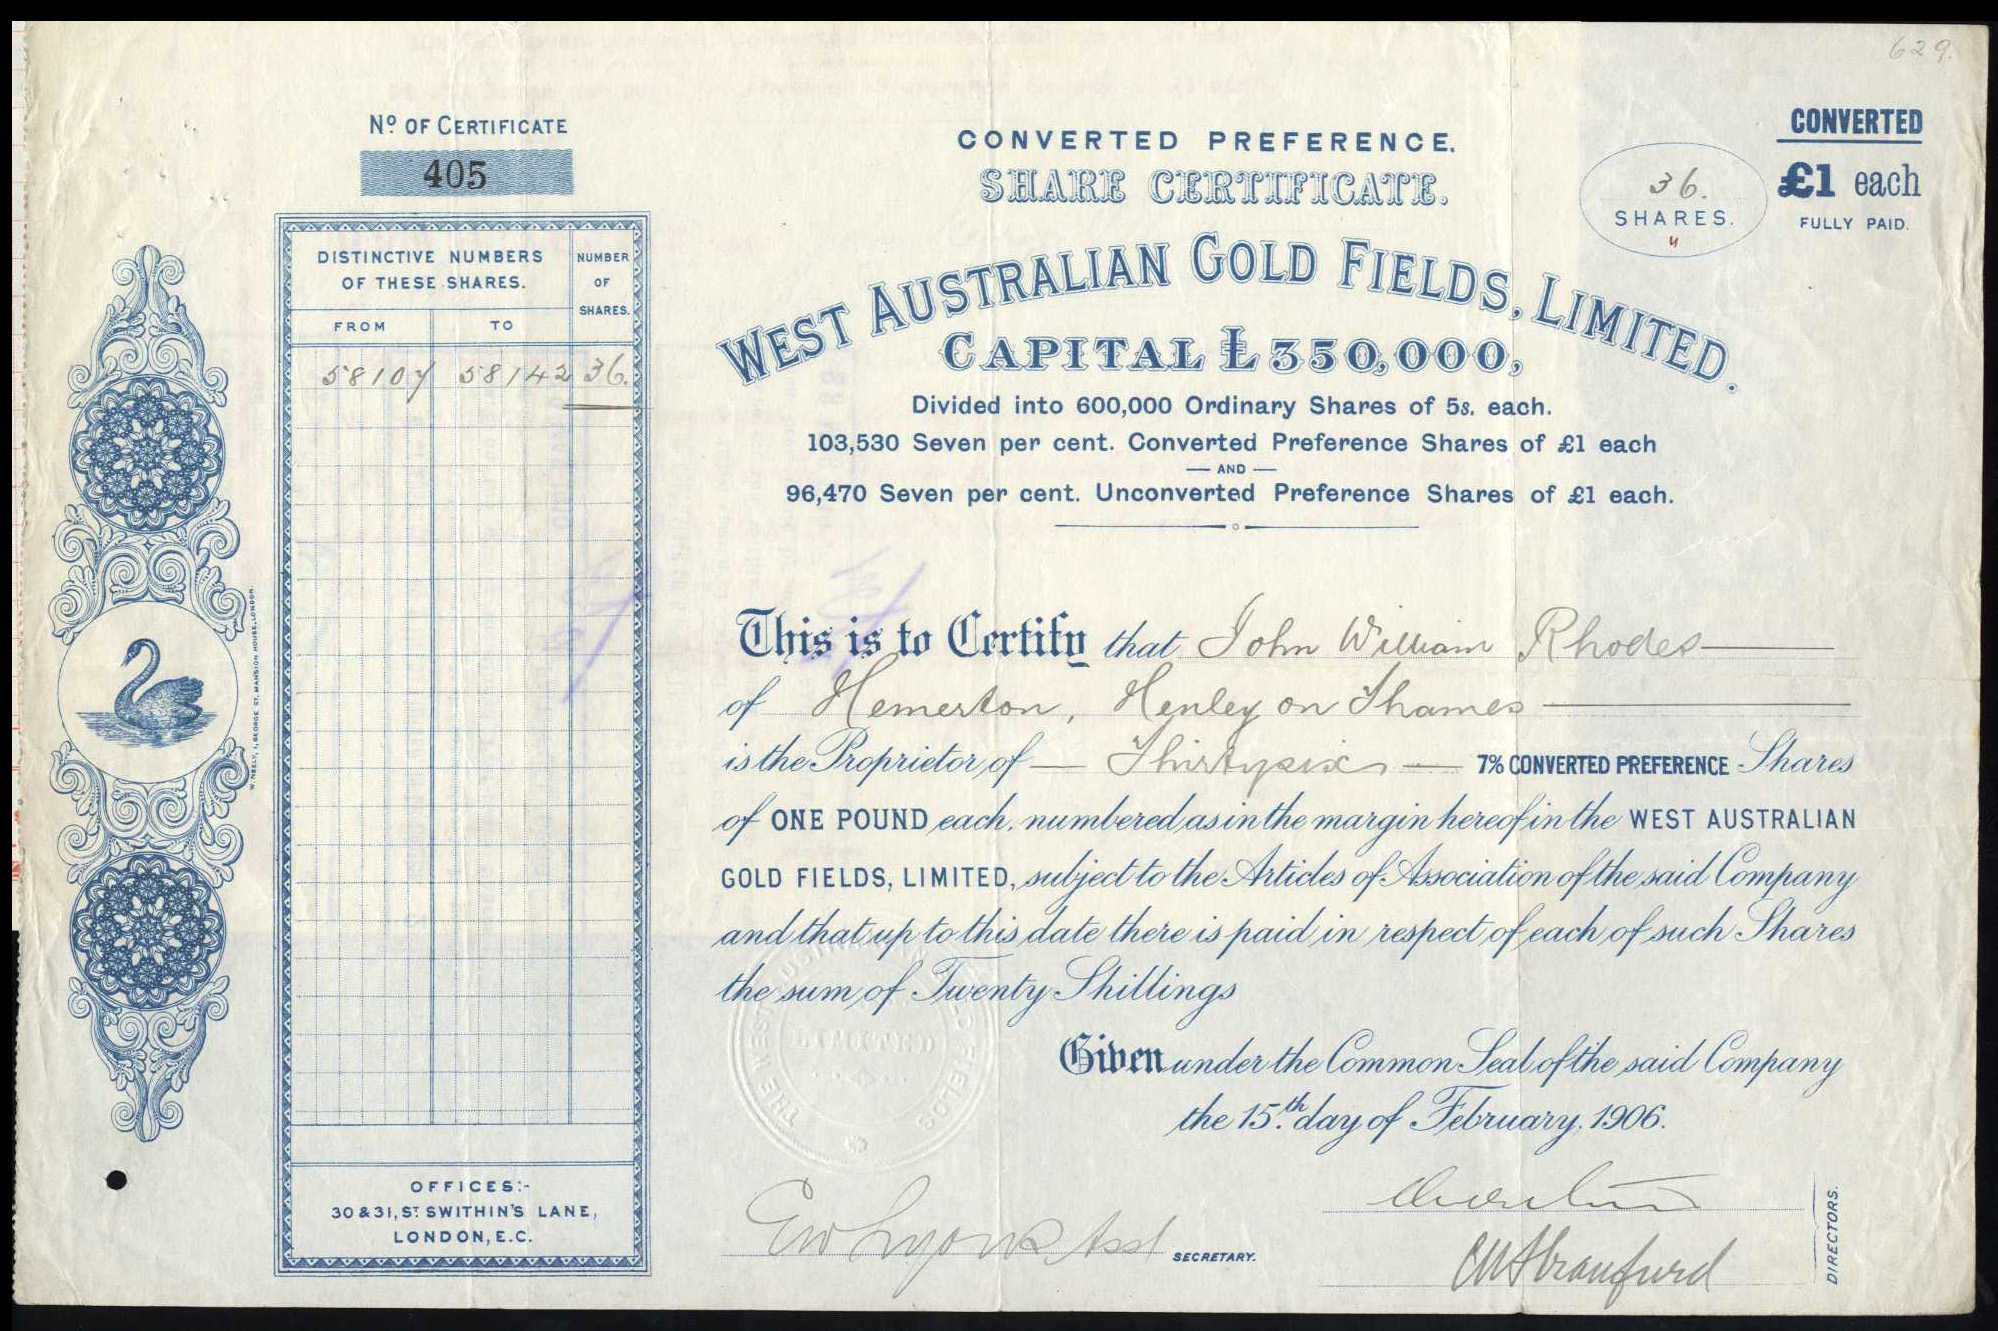 629.
Nº OF CERTIFICATE
405
CONVERTED PREFERENCE.
SHARE CERTIFICATE.
36.
SHARES.
CONVERTED
£1 each
FULLY PAID.
DISTINCTIVE NUMBERS
OF THESE SHARES.
NUMBER
OF
SHARES.
FROM
TO
58107 58142 36.
WEST AUSTRALIAN GOLD FIELDS, LIMITED.
CAPITAL £350,000,
Divided into 600,000 Ordinary Shares of 5s. each.
103,530 Seven per cent. Converted Preference Shares of £1 each
AND
96,470 Seven per cent. Unconverted Preference Shares of £1 each.
This is to Certify that John William Rhodes
of Hemerton, Henley on Thames
is the Proprietor of Thirtysix 7% CONVERTED PREFERENCE Shares
of ONE POUND each, numbered as in the margin hereof in the WEST AUSTRALIAN
GOLD FIELDS, LIMITED, subject to the Articles of Association of the said Company
and that up to this date there is paid in respect of each of such Shares
the sum of Twenty Shillings
Given under the Common Seal of the said Company
the 15th day of February, 1906.
THE WEST AUSTRALIAN GOLD FIELDS
LIMITED
SECRETARY.
DIRECTORS.
OFFICES:-
30 & 31, ST SWITHIN'S LANE,
LONDON, E.C.
W. NEELY, 1, GEORGE ST. MANSION HOUSE, LONDON.